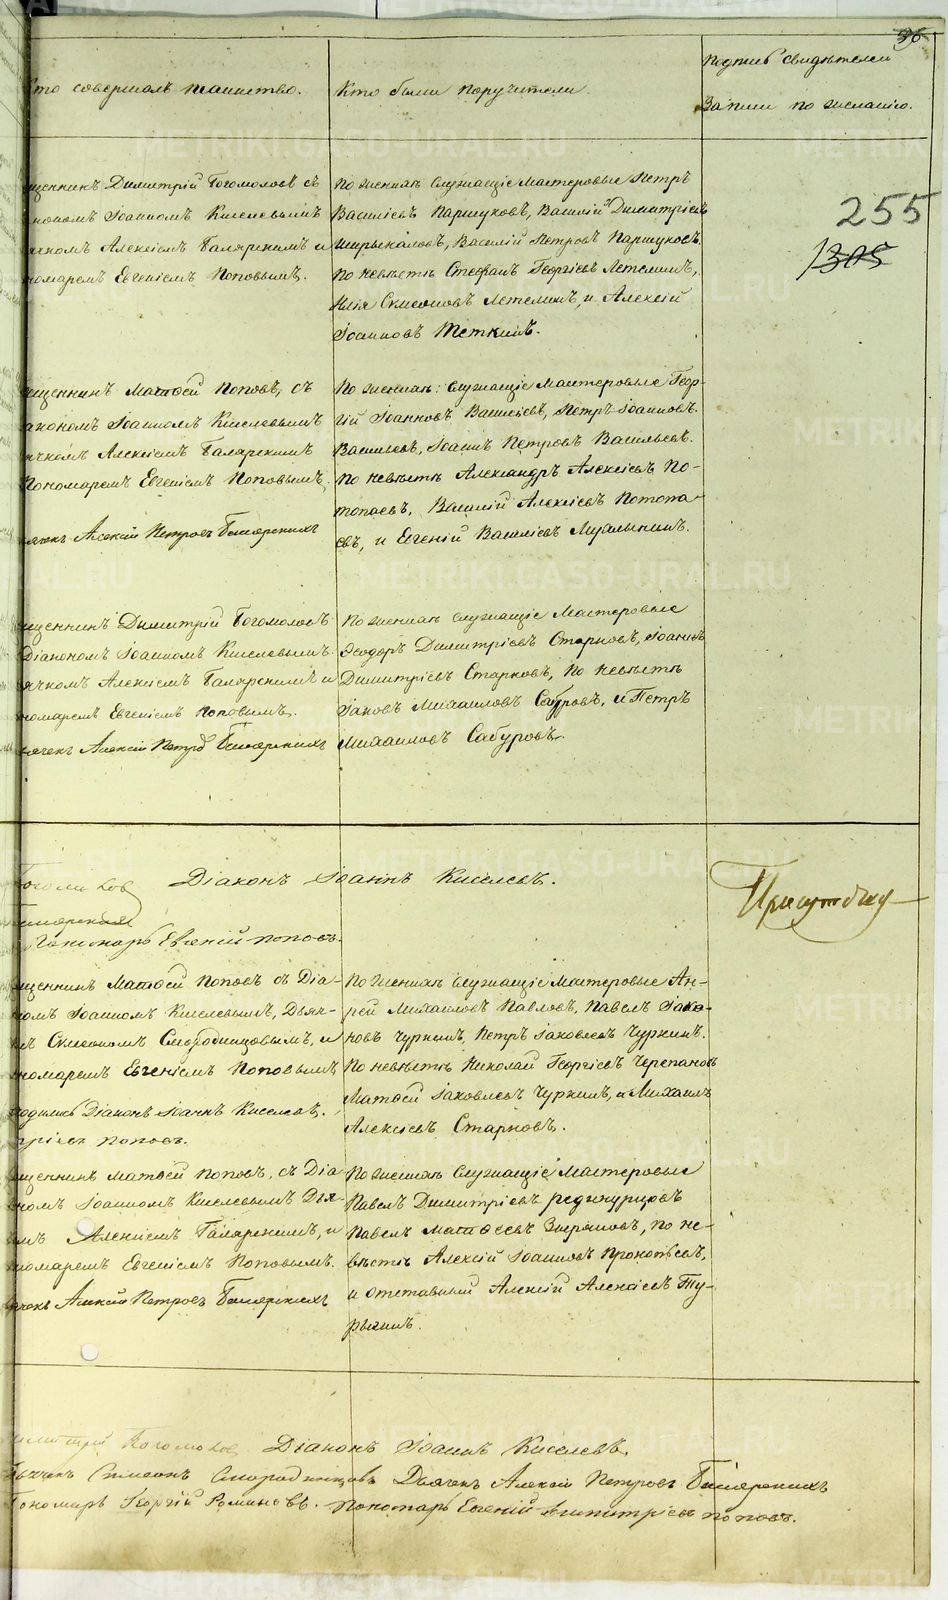 36
Кто совершалъ таинство.
Кто были поручители.
Подпись свидѣтелей
записи по желанію.
255
1305
щенникъ Димитрій Богомоловъ съ
Іоанномъ Киселевымъ
Алексіемъ Балярскимъ и
номаремъ Евгеніемъ Поповымъ.
По женихѣ служащіе мастеровые Петръ
Василіевъ Паршуковъ, Василій Димитріевъ
Ширыкаловъ, Василій Петровъ Паршуковъ.
По невѣстѣ Стефанъ Георгіевъ Летеминъ,
Илія Симеоновъ Летеминъ, и Алексій
Іоанновъ Теткинъ.
щенникъ Матѳей Поповъ, съ
акономъ Іоанномъ Киселевымъ
ячкомъ Алексіемъ Балярскимъ
Пономаремъ Евгеніемъ Поповымъ.
ячекъ Алексій Петровъ Билярскихъ
По женихѣ: служащіе мастеровые Геор-
гій Іоанновъ Василіевъ, Петръ Іоанновъ
Васильевъ, Іоаннъ Петровъ Васильевъ.
По невѣстѣ Александръ Алексіевъ По-
топаевъ, Василій Алексіевъ Потопа-
евъ, и Евгеній Василіевъ
щенникъ Димитрій Богомоловъ
Діакономъ Іоанномъ Киселевымъ
ячкомъ Алексіемъ Балярскимъ и
номаремъ Евгеніемъ Поповымъ.
ячекъ Алексій Петровъ Билярскихъ
По женихѣ служащіе мастеровые
Ѳеодоръ Димитріевъ Старковъ, Іоаннъ
Димитріевъ Старковъ, по невѣстѣ
Іаковъ Михаиловъ Сабуровъ, и Петръ
Михаиловъ Сабуровъ.
Богомолов Діаконъ Іоаннъ Киселевъ.
Пономарь Евгеній Поповъ.
щенникъ Матѳей Поповъ съ Діа-
номъ Іоанномъ Киселевымъ, Дьяч-
Симеономъ Смородинцовымъ, и
номаремъ Евгеніемъ Поповымъ
Діаконъ Іоаннъ Киселевъ.
Поповъ.
По женихѣ служащіе мастеровые Ан-
рей Михаиловъ Павловъ, Павелъ Іако-
новъ Чуркинъ, Петръ Іаковлевъ Чуркинъ.
По невѣстѣ Николай Георгіевъ Черепановъ
Матѳей Іаковлевъ Чуркинъ, и Михаилъ
Алексіевъ Старковъ.
щенникъ Матѳей Поповъ, съ Діа
номъ Іоанномъ Киселевымъ Дья-
Алексіемъ Балярскимъ, и
номаремъ Евгеніемъ Поповымъ.
ячекъ Алексій Петровъ Билярскихъ
По женихѣ служащіе мастеровые
Павелъ Димитріевъ
Павелъ Матѳеевъ Зыряновъ, по не-
вѣстѣ Алексій Іоанновъ Прокопьевъ,
и отставный Алексій Алексіевъ Ту-
рыгинъ.
Димитрій Богомолов Діаконъ Іоаннъ Киселевъ,
Дьячекъ Симеонъ Смородинцовъ Дьячекъ Алексій Петровъ Билярскихъ
Пономарь Георгій Романовъ. Пономарь Евгеній Димитріевъ Поповъ.
METRIKI.GASO-URAL.RU